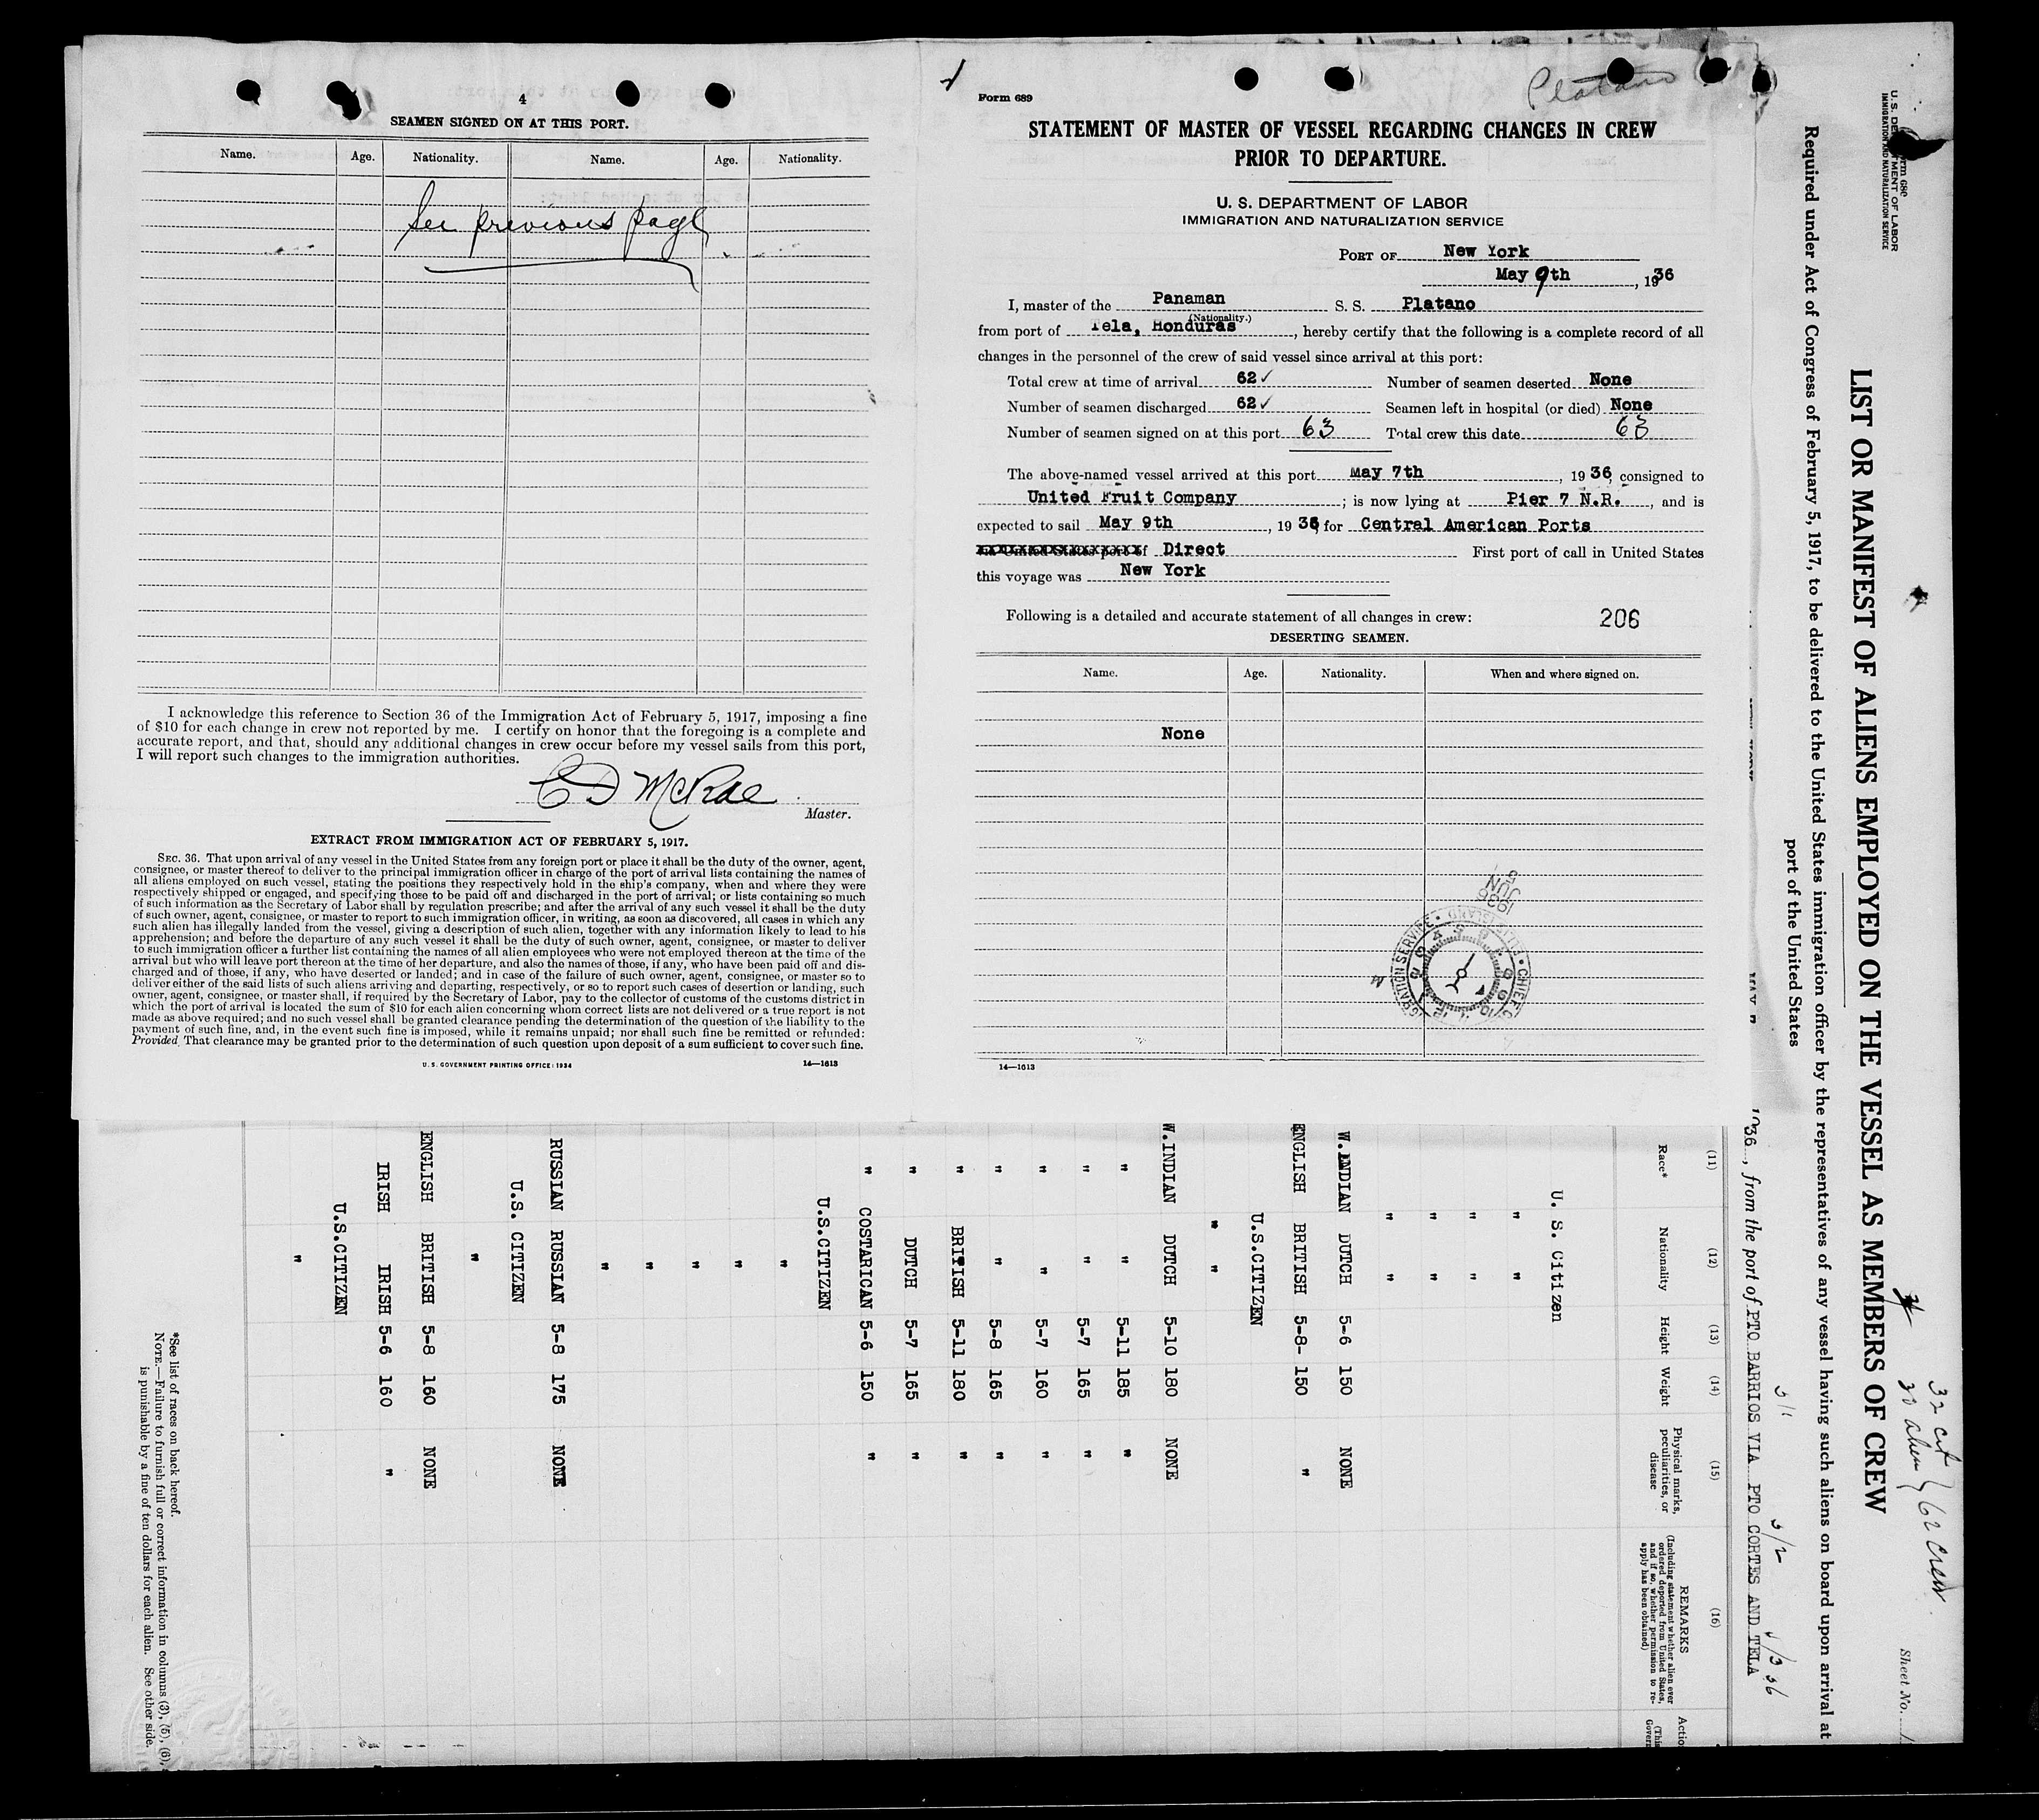 4
SEAMEN SIGNED ON AT THIS PORT.
Name. Age. Nationality. Name. Age. Nationality.
See previous page
I acknowledge this reference to Section 36 of the Immigration Act of February 5, 1917, imposing a fine
of $10 for each change in crew not reported by me. I certify on honor that the foregoing is a complete and
accurate report, and that, should any additional changes in crew occur before my vessel sails from this port,
I will report such changes to the immigration authorities.
C D McRae
Master.
EXTRACT FROM IMMIGRATION ACT OF FEBRUARY 5, 1917.
SEC. 36. That upon arrival of any vessel in the United States from any foreign port or place it shall be the duty of the owner, agent,
consignee, or master thereof to deliver to the principal immigration officer in charge of the port of arrival lists containing the names of
all aliens employed on such vessel, stating the positions they respectively hold in the ship's company, when and where they were
respectively shipped or engaged, and specifying those to be paid off and discharged in the port of arrival; or lists containing so much
of such information as the Secretary of Labor shall by regulation prescribe; and after the arrival of any such vessel it shall be the duty
of such owner, agent, consignee, or master to report to such immigration officer, in writing, as soon as discovered, all cases in which any
such alien has illegally landed from the vessel, giving a description of such alien, together with any information likely to lead to his
apprehension; and before the departure of any such vessel it shall be the duty of such owner, agent, consignee, or master to deliver
to such immigration officer a further list containing the names of all alien employees who were not employed thereon at the time of the
arrival but who will leave port thereon at the time of her departure, and also the names of those, if any, who have been paid off and dis-
charged and of those, if any, who have deserted or landed; and in case of the failure of such owner, agent, consignee, or master so to
deliver either of the said lists of such aliens arriving and departing, respectively, or so to report such cases of desertion or landing, such
owner, agent, consignee, or master shall, if required by the Secretary of Labor, pay to the collector of customs of the customs district in
which the port of arrival is located the sum of $10 for each alien concerning whom correct lists are not delivered or a true report is not
made as above required; and no such vessel shall be granted clearance pending the determination of the question of the liability to the
payment of such fine, and, in the event such fine is imposed, while it remains unpaid; nor shall such fine be remitted or refunded:
Provided, That clearance may be granted prior to the determination of such question upon deposit of a sum sufficient to cover such fine.
U. S. GOVERNMENT PRINTING OFFICE: 1934 14—1613
Form 689
Platano
STATEMENT OF MASTER OF VESSEL REGARDING CHANGES IN CREW
PRIOR TO DEPARTURE.
U. S. DEPARTMENT OF LABOR
IMMIGRATION AND NATURALIZATION SERVICE
PORT OF New York
May 9th, 1936
I, master of the Panaman S. S. Platano
(Nationality.)
from port of Tela, Honduras, hereby certify that the following is a complete record of all
changes in the personnel of the crew of said vessel since arrival at this port:
Total crew at time of arrival 62✓ Number of seamen deserted None
Number of seamen discharged 62✓ Seamen left in hospital (or died) None
Number of seamen signed on at this port 63 Total crew this date 63
The above-named vessel arrived at this port May 7th, 1936, consigned to
United Fruit Company; is now lying at Pier 7 N.R., and is
expected to sail May 9th, 1936, for Central American Ports
Direct First port of call in United States
this voyage was New York
Following is a detailed and accurate statement of all changes in crew: 206
DESERTING SEAMEN.
Name. Age. Nationality. When and where signed on.
None
1936
JUN
5
14—1613
U. S. DEPARTMENT OF LABOR
IMMIGRATION AND NATURALIZATION SERVICE
Sheet No.
32 cit
30 alien } 62 crew
LIST OR MANIFEST OF ALIENS EMPLOYED ON THE VESSEL AS MEMBERS OF CREW
Required under Act of Congress of February 5, 1917, to be delivered to the United States immigration officer by the representatives of any vessel having such aliens on board upon arrival at
port of the United States
1936, from the port of PTO BARRIOS VIA PTO CORTES AND TELA
(11) (12) (13) (14) (15) (16)
Race* Nationality Height Weight Physical marks, peculiarities, or disease REMARKS
(Including statement whether alien ever ordered deported from United States, and if so, whether permission to re-apply has been obtained)
U. S. Citizen
" "
" "
" "
" "
W. INDIAN DUTCH 5-6 150 NONE
ENGLISH BRITISH 5-8- 150 "
U.S.CITIZEN
" "
W.INDIAN DUTCH 5-10 180 NONE
" " 5-11 185 "
" " 5-7 165 "
" " 5-7 160 "
" " 5-8 165 "
" BRITISH 5-11 180 "
" DUTCH 5-7 165 "
" COSTARICAN 5-6 150 "
U.S.CITIZEN
"
"
"
"
"
RUSSIAN RUSSIAN 5-8 175 NONE
U.S. CITIZEN
"
ENGLISH BRITISH 5-8 160 NONE
IRISH IRISH 5-6 160 "
U.S.CITIZEN
"
*See list of races on back hereof.
NOTE.—Failure to furnish full or correct information in columns (3), (5), (6),
is punishable by a fine of ten dollars for each alien. See other side.